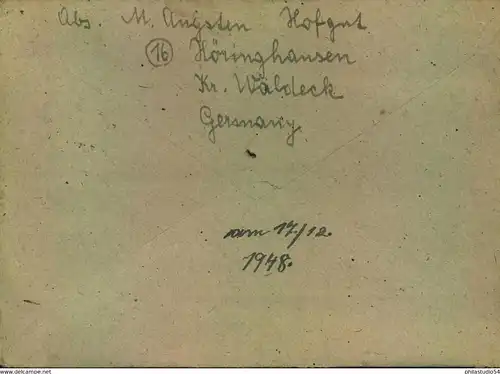 Abs. M. Angsten Hofgut
(16) Höringhausen
Kr. Waldeck
Germany
am 17/12.
1948.
philastudio54